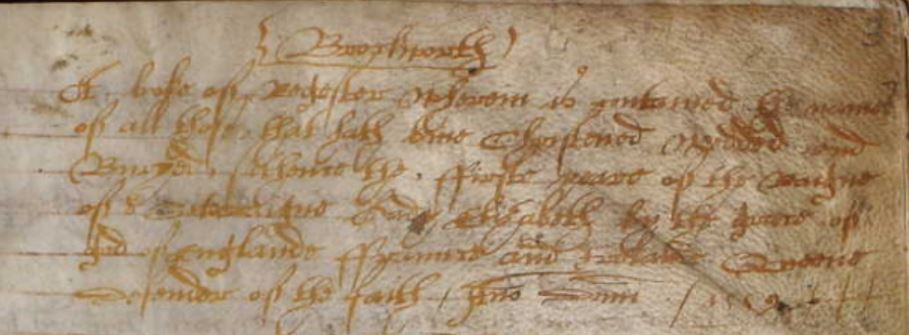 Brockworth
A boke of Regester wherein is conteined the names
of all those that hath bene Christened wedded and
Buryed sithence the ffirste yeare of the Raigne
of Lady Elizabeth by the grace of
god of Englande ffraunce and Irelande Queene
Defender of the faith Ano Dmni 1559